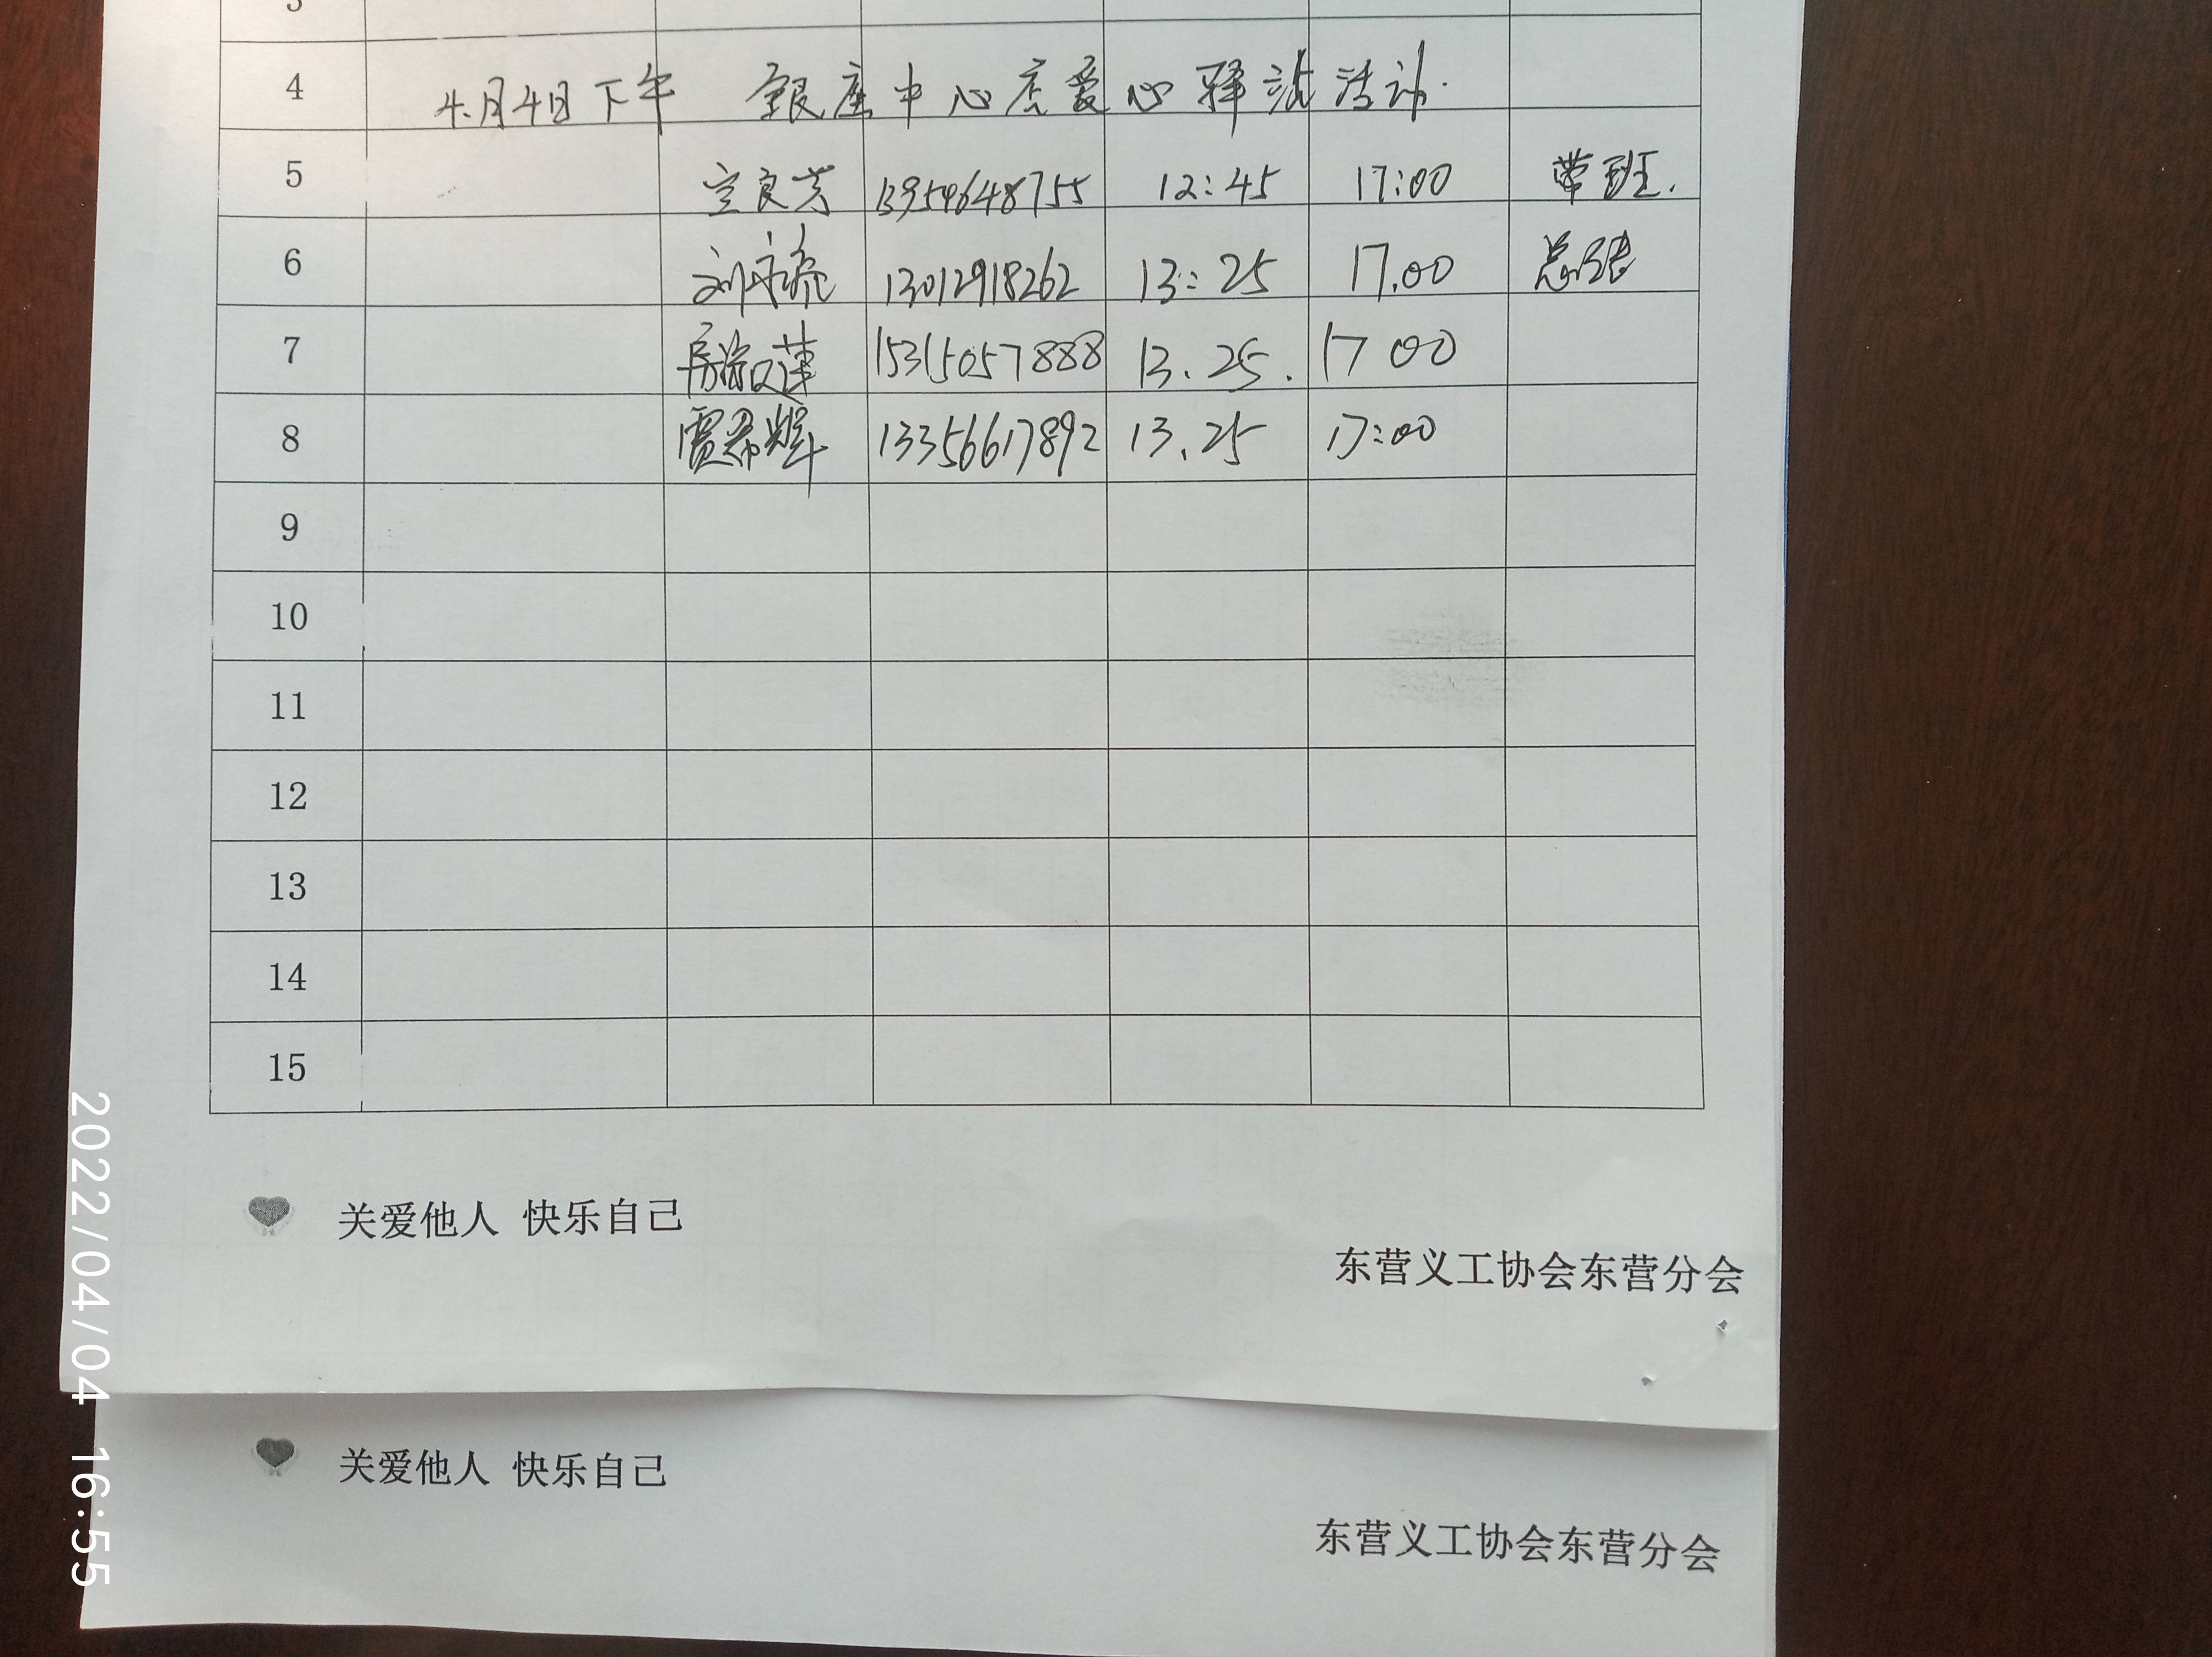 4 4月4日下午 银座中心店爱心驿站活动.
5 13954648755 12:45 17:00 带班.
6 刘 13012918262 13:25 17.00 总结
7 房淑莲 15315057888 13.25. 17 00
8 贾希辉 13356617892 13.25 17:00
9
10
11
12
13
14
15
关爱他人 快乐自己
东营义工协会东营分会
关爱他人 快乐自己
东营义工协会东营分会
2022/04/04 16:55